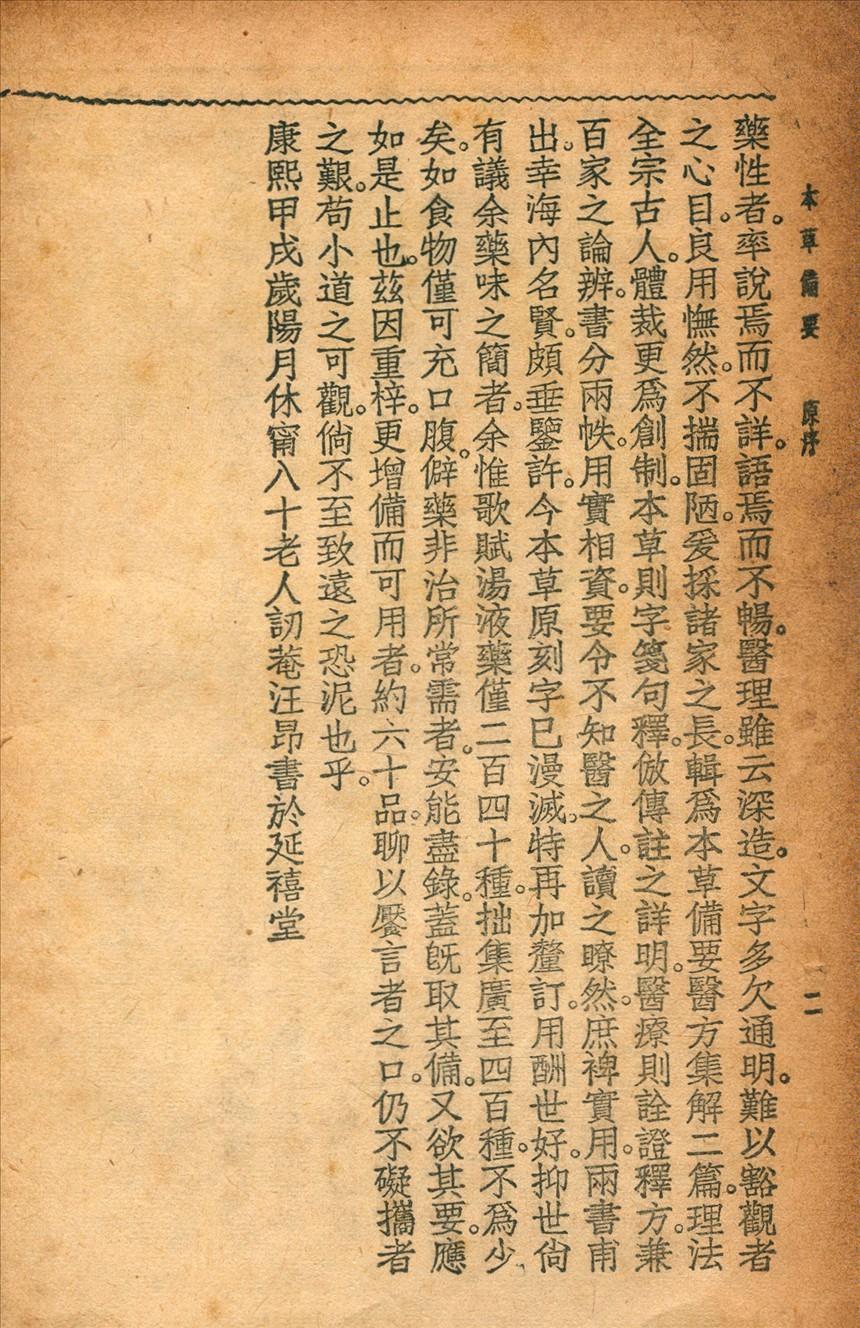 本草備要　原序　二
藥性者。率說焉而不詳。語焉而不暢。醫理雖云深造。文字多欠通明。難以豁觀者
之心目。良用憮然。不揣固陋。爰採諸家之長。輯爲本草備要醫方集解二篇。理法
全宗古人。體裁更爲創制。本草則字箋句釋。倣傳註之詳明。醫療則詮證釋方。兼
百家之論辨。書分兩帙。用實相資。要令不知醫之人。讀之瞭然。庶裨實用。兩書甫
出。幸海內名賢。頗垂鑒許。今本草原刻字已漫滅。特再加釐訂。用酬世好。抑世倘
有議余藥味之簡者。余惟歌賦湯液藥僅二百四十種。拙集廣至四百種。不爲少
矣。如食物僅可充口腹。僻藥非治所常需者。安能盡錄。蓋旣取其備。又欲其要。應
如是止也。茲因重梓。更增備而可用者。約六十品。聊以饜言者之口。仍不礙攜者
之艱。苟小道之可觀。倘不至致遠之恐泥也乎。
康熙甲戌歲陽月休甯八十老人訒菴汪昂書於延禧堂